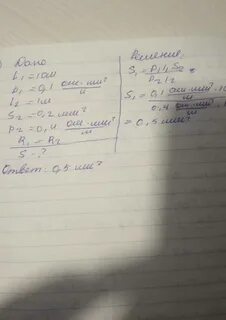 ) Дано
l₁ = 10м
ρ₁ = 0,1 ом·мм²/м
l₂ = 1м
S₂ = 0,2 мм²
ρ₂ = 0,4 ом·мм²/м
R₁ = R₂
S - ?
Решение
S₁ = ρ₁ l₁ S₂ / ρ₂ l₂
S₁ = 0,1 ом·мм²/м · 10 / 0,4 ом·мм²/м
= 0,5 мм²
Ответ: 0,5 мм²